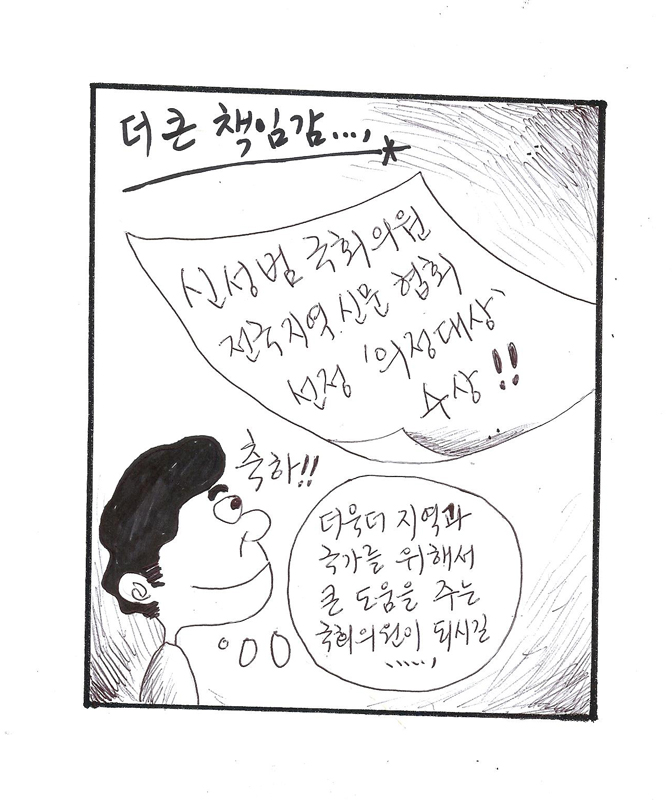 더 큰 책임감...,
신성범 국회의원
전국지역신문협회
선정 '의정대상'
수상!!
축하!!
더욱더 지역과
국가를 위해서
큰 도움을 주는
국회의원이 되시길
.....,